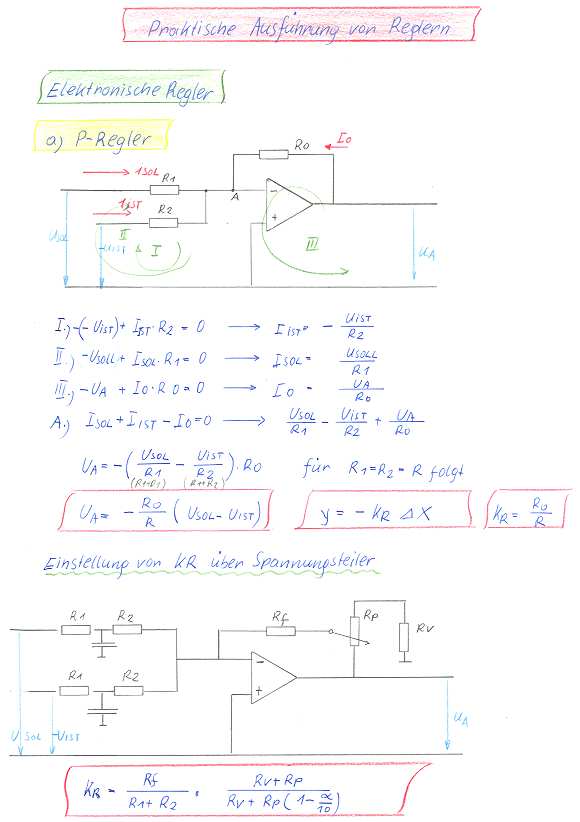 Praktische Ausführung von Reglern
Elektronische Regler
a) P-Regler
R0
I0
ISOL
R1
A
IIST
R2
USOL
-UIST
II
I
III
UA
- +
I.) -(-UIST) + IIST · R2 = 0 → IIST = - UIST / R2
II.) -USOLL + ISOL · R1 = 0 → ISOL = USOLL / R1
III.) -UA + I0 · R0 = 0 → I0 = UA / R0
A.) ISOL + IIST - I0 = 0 → USOL / R1 - UIST / R2 + UA / R0
UA = - ( USOL / R1 - UIST / R2 ) · R0 für R1 = R2 = R folgt
(R1+R2)
UA = - R0 / R ( USOL - UIST )
y = - KR ΔX
KR = R0 / R
Einstellung von KR über Spannungsteiler
R1 R2 Rf Rp Rv
R1 R2
- +
USOL -UIST
UA
KR = Rf / R1 + R2 · Rv + Rp / Rv + Rp ( 1 - α / 10 )